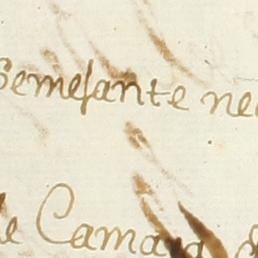 Semejante ne
de Camara d